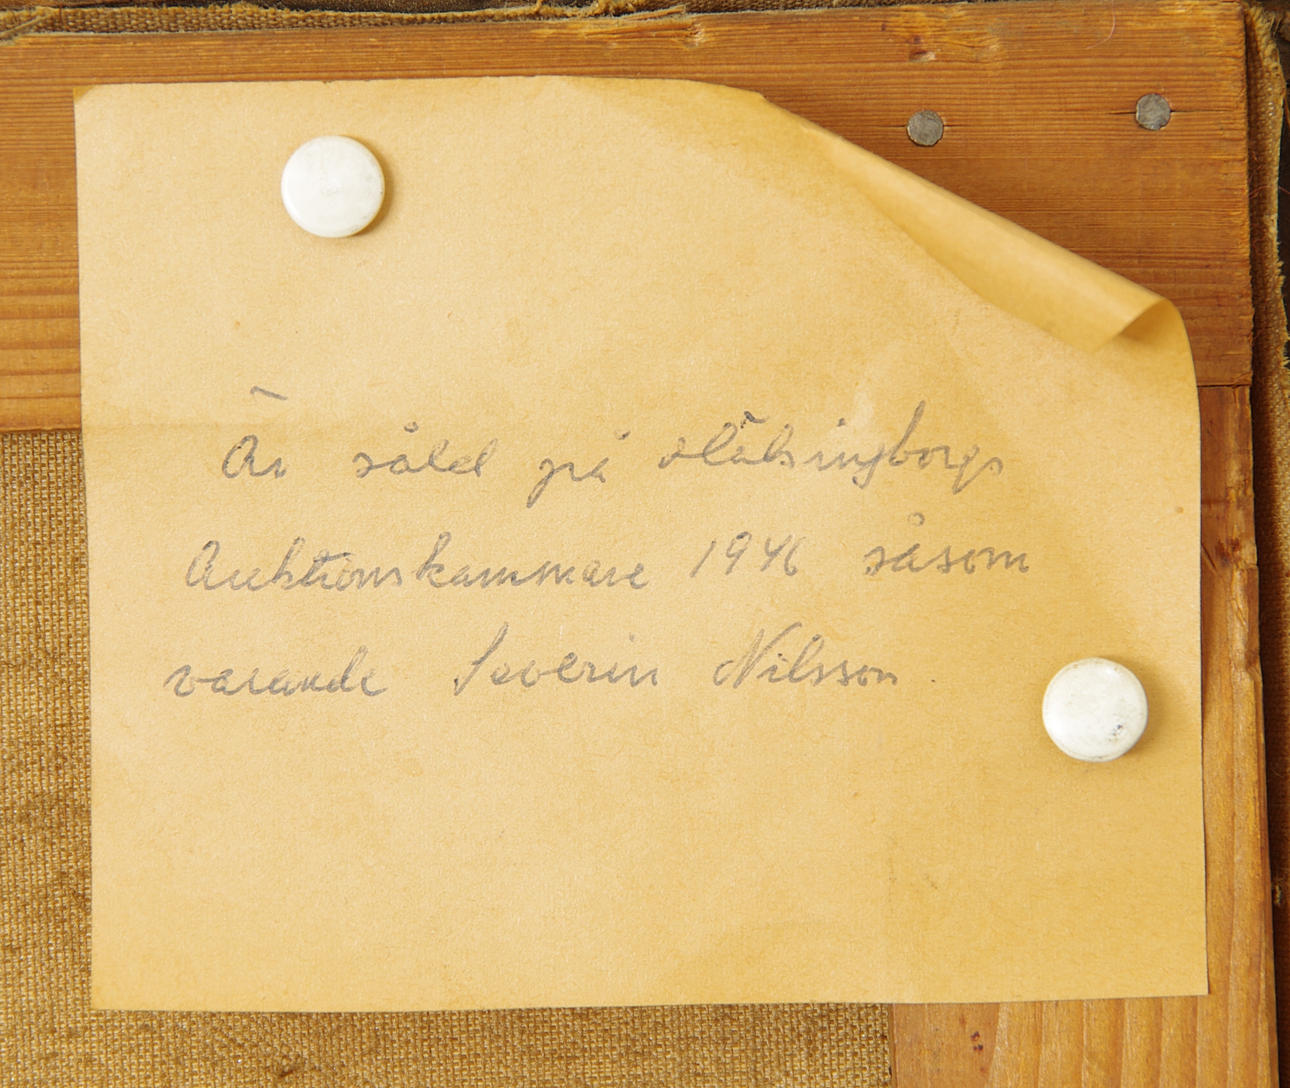 Är såld på Hälsingborgs
Auktionskammare 1946 såsom
varande Severin Nilsson.